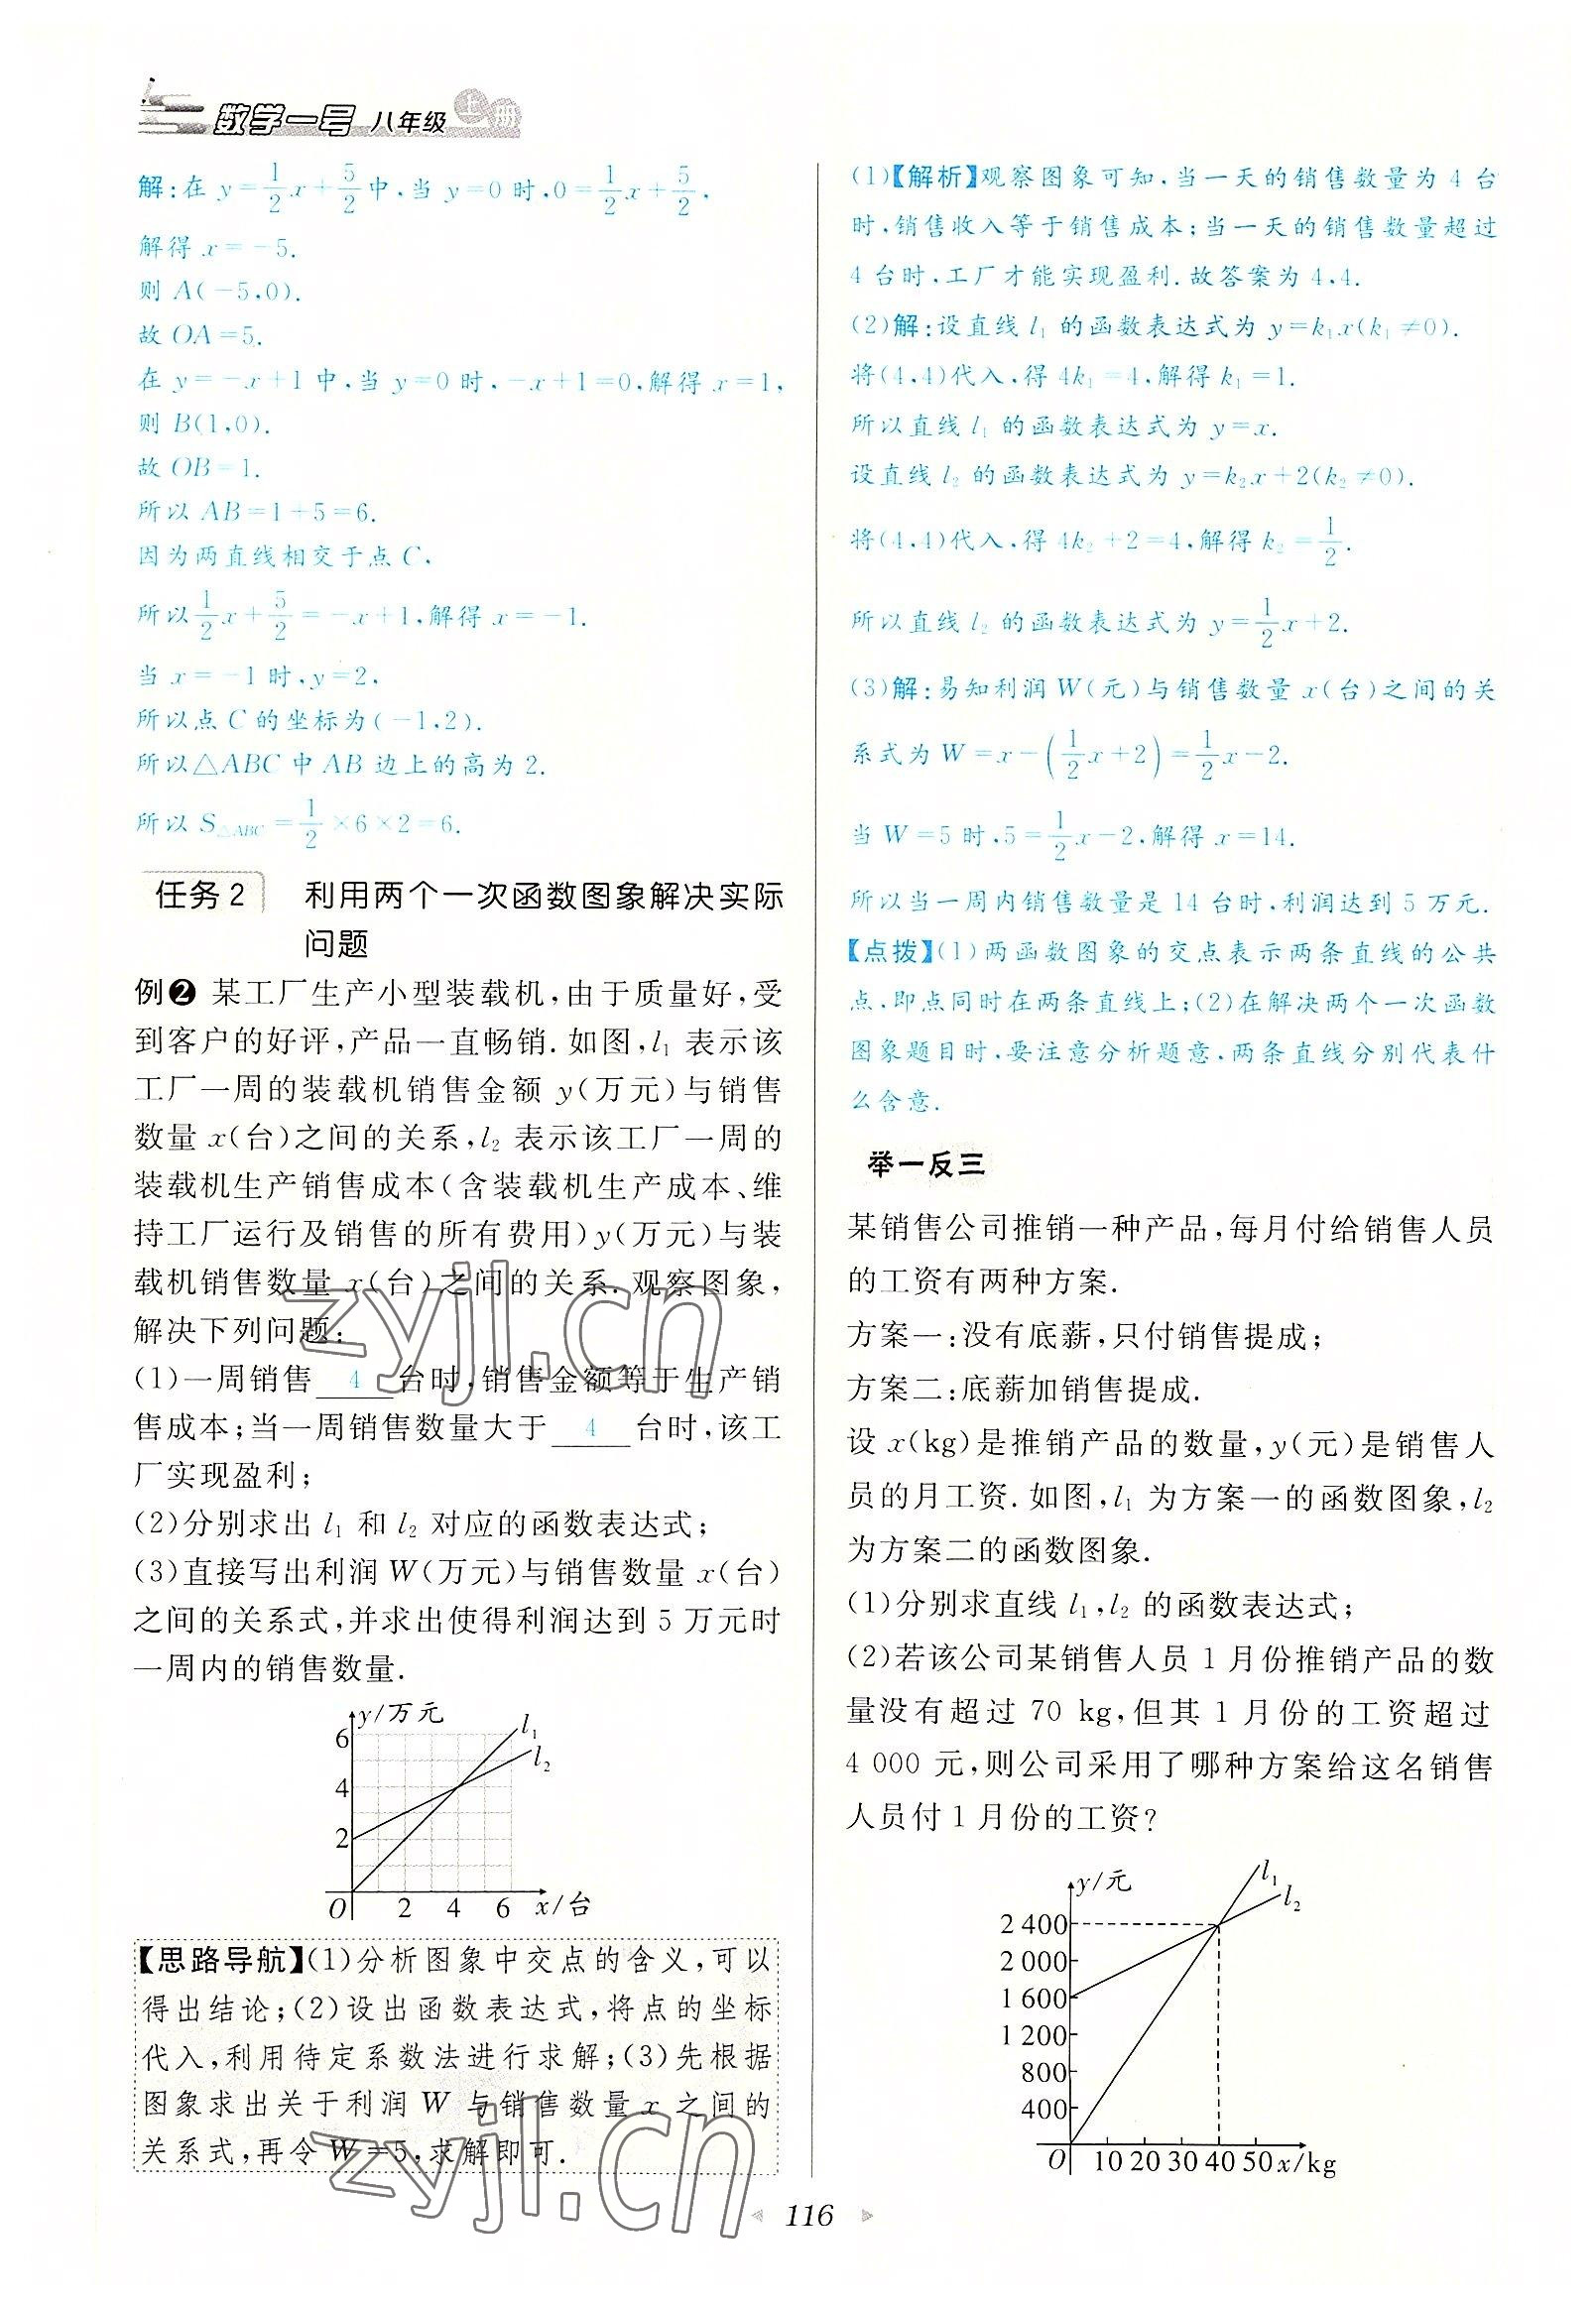 数学一号 八年级 上册
解:在 y=1/2x+5/2中,当 y=0 时,0=1/2x+5/2,
解得 x=-5.
则 A(-5,0).
故 OA=5.
在 y=-x+1 中,当 y=0 时,-x+1=0,解得 x=1,
则 B(1,0).
故 OB=1.
所以 AB=1+5=6.
因为两直线相交于点 C,
所以1/2x+5/2=-x+1,解得 x=-1.
当 x=-1 时,y=2,
所以点 C 的坐标为(-1,2).
所以△ABC 中 AB 边上的高为 2.
所以 S△ABC=1/2×6×2=6.
任务2 利用两个一次函数图象解决实际
问题
例❷ 某工厂生产小型装载机,由于质量好,受
到客户的好评,产品一直畅销.如图,l₁ 表示该
工厂一周的装载机销售金额 y(万元)与销售
数量 x(台)之间的关系,l₂ 表示该工厂一周的
装载机生产销售成本(含装载机生产成本、维
持工厂运行及销售的所有费用)y(万元)与装
载机销售数量 x(台)之间的关系.观察图象,
解决下列问题:
(1)一周销售 4 台时,销售金额等于生产销
售成本;当一周销售数量大于 4 台时,该工
厂实现盈利;
(2)分别求出 l₁ 和 l₂ 对应的函数表达式;
(3)直接写出利润 W(万元)与销售数量 x(台)
之间的关系式,并求出使得利润达到 5 万元时
一周内的销售数量.
y/万元
6
l₁
l₂
4
2
O 2 4 6 x/台
【思路导航】(1)分析图象中交点的含义,可以
得出结论;(2)设出函数表达式,将点的坐标
代入,利用待定系数法进行求解;(3)先根据
图象求出关于利润 W 与销售数量 x 之间的
关系式,再令 W=5,求解即可.
(1)【解析】观察图象可知,当一天的销售数量为 4 台
时,销售收入等于销售成本;当一天的销售数量超过
4 台时,工厂才能实现盈利.故答案为 4,4.
(2)解:设直线 l₁ 的函数表达式为 y=k₁x(k₁≠0).
将(4,4)代入,得 4k₁=4,解得 k₁=1.
所以直线 l₁ 的函数表达式为 y=x.
设直线 l₂ 的函数表达式为 y=k₂x+2(k₂≠0).
将(4,4)代入,得 4k₂+2=4,解得 k₂=1/2.
所以直线 l₂ 的函数表达式为 y=1/2x+2.
(3)解:易知利润 W(元)与销售数量 x(台)之间的关
系式为 W=x-(1/2x+2)=1/2x-2.
当 W=5 时,5=1/2x-2,解得 x=14.
所以当一周内销售数量是 14 台时,利润达到 5 万元.
【点拨】(1)两函数图象的交点表示两条直线的公共
点,即点同时在两条直线上;(2)在解决两个一次函数
图象题目时,要注意分析题意,两条直线分别代表什
么含意.
举一反三
某销售公司推销一种产品,每月付给销售人员
的工资有两种方案.
方案一:没有底薪,只付销售提成;
方案二:底薪加销售提成.
设 x(kg)是推销产品的数量,y(元)是销售人
员的月工资.如图,l₁ 为方案一的函数图象,l₂
为方案二的函数图象.
(1)分别求直线 l₁,l₂ 的函数表达式;
(2)若该公司某销售人员 1 月份推销产品的数
量没有超过 70 kg,但其 1 月份的工资超过
4 000 元,则公司采用了哪种方案给这名销售
人员付 1 月份的工资?
y/元
l₁
l₂
2 400
2 000
1 600
1 200
800
400
O 10 20 30 40 50 x/kg
zyjl.cn
zyjl.cn
116